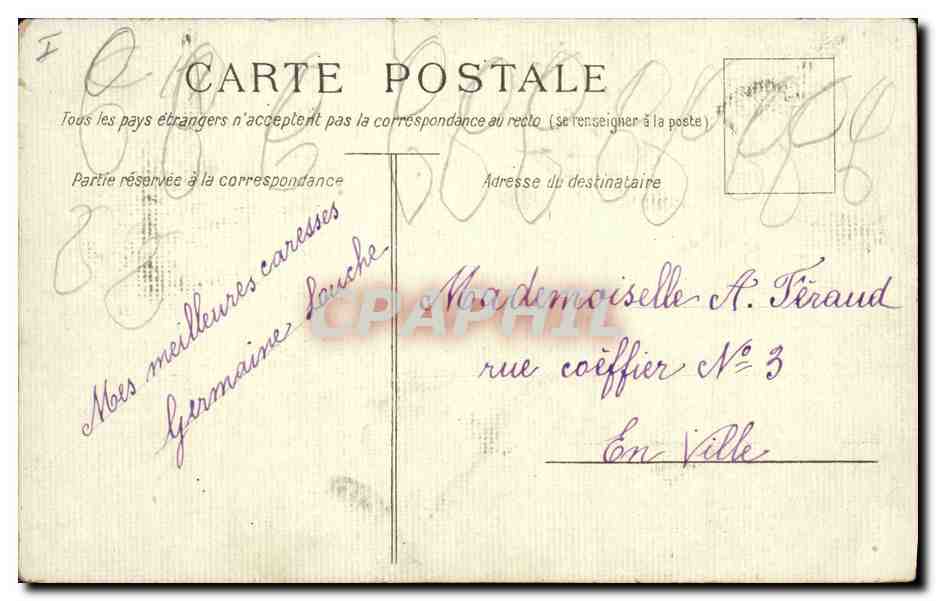 I
CARTE POSTALE
Tous les pays étrangers n'acceptent pas la correspondance au recto (se renseigner à la poste)
Partie réservée à la correspondance
Adresse du destinataire
Mes meilleures caresses
Germaine Louche
Mademoiselle A. Féraud
rue coëffier Nº 3
En Ville
CPAPHIL